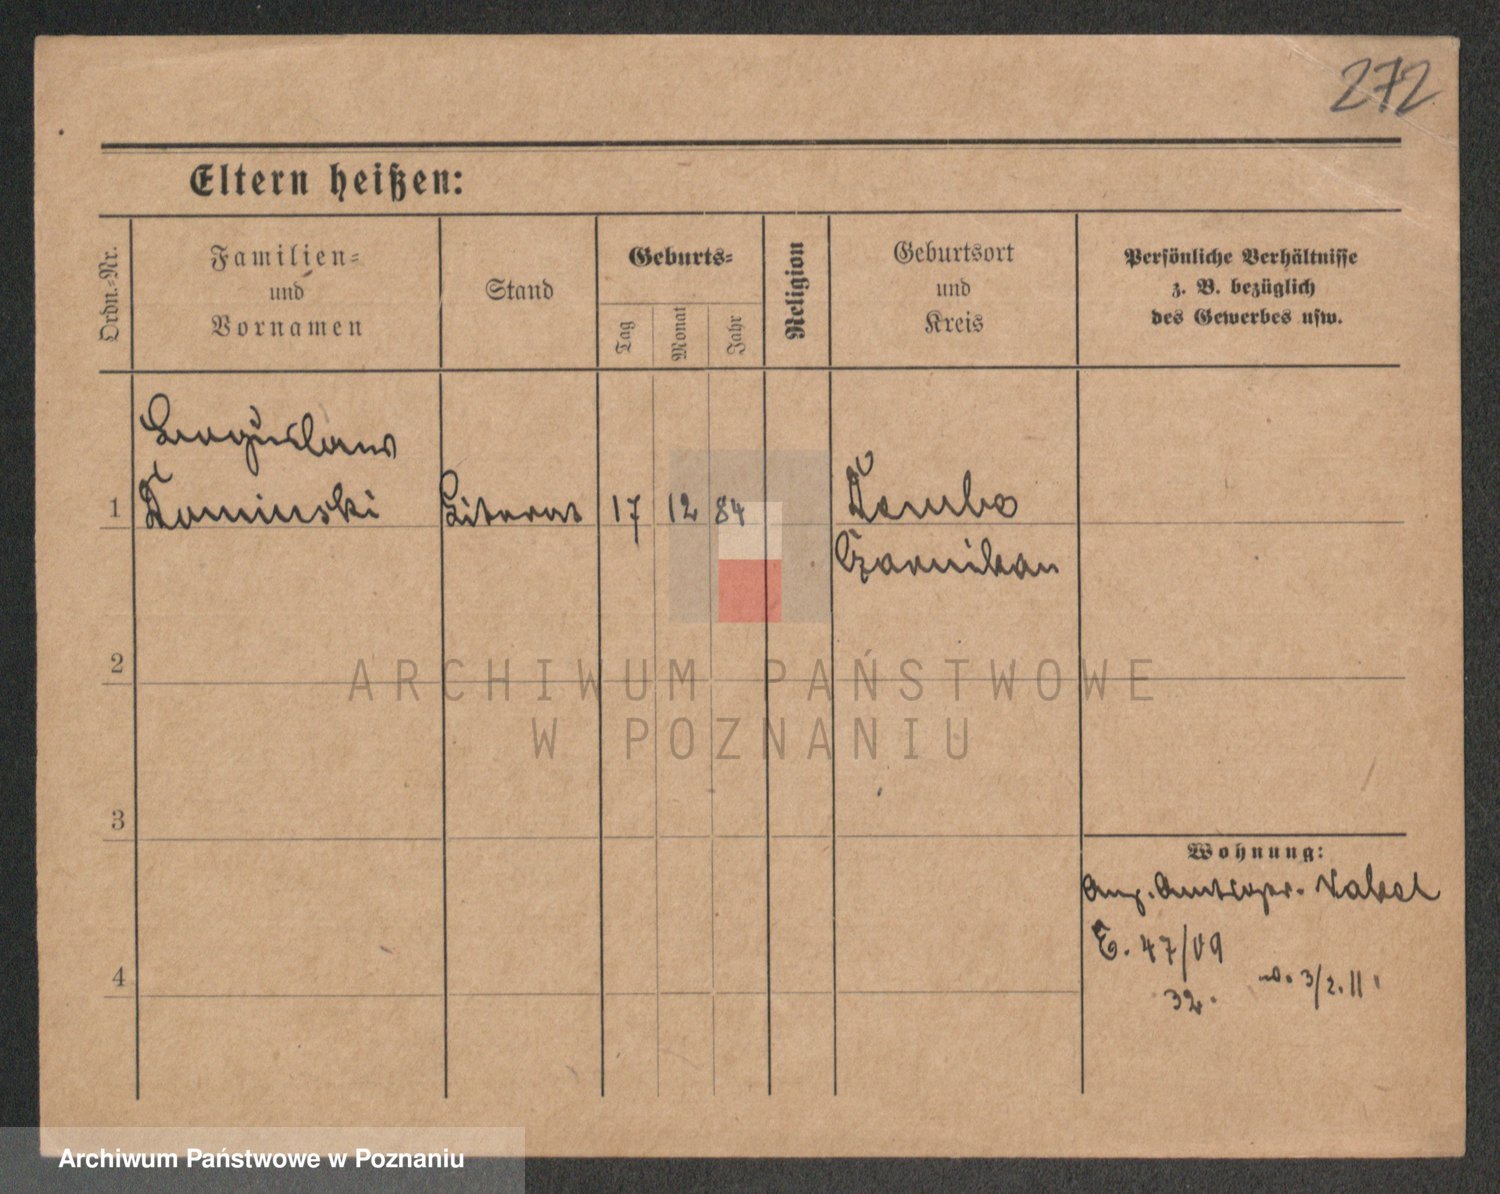 272
Eltern heißen:
Ordn.-Nr.
Familien-
und
Vornamen
Stand
Geburts-
Tag
Monat
Jahr
Religion
Geburtsort
und
Kreis
Persönliche Verhältnisse
z. B. bezüglich
des Gewerbes usw.
Boguslaus
1 Kaminski Literat 17 12 84 Dembo
Czarnikau
2
3
4
Wohnung:
Ang. Amtsger. Nakel
E. 47/09
v. 3/2.11.
32.
ARCHIWUM PAŃSTWOWE
W POZNANIU
Archiwum Państwowe w Poznaniu